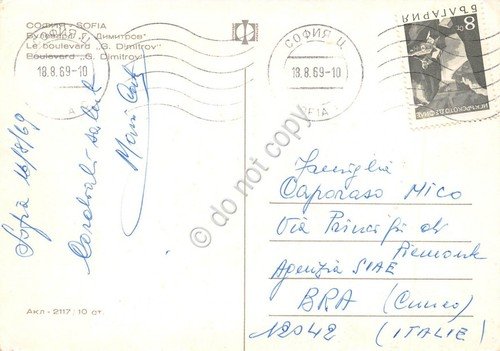 СОФИЯ - SOFIA
Булевард „Г. Димитров“
Le boulevard „G. Dimitrov“
Boulevard „G. Dimitrov“
18.8.69-10
СОФИЯ Ц.
18.8.69-10
SOFIA
БЪЛГАРИЯ
8 СТ
Sofia 16/8/69
Cordiali saluti
Famiglia
Caporaso Mico
Via Principi di
Piemonte
Agenzia SIAE
BRA (Cuneo)
12042 (ITALIE)
Акл - 2117; 10 ст
do not copy